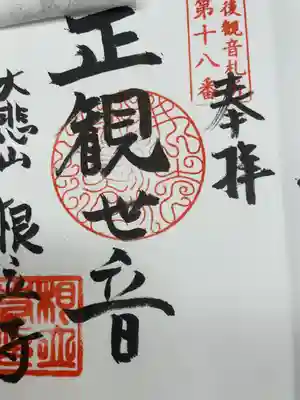 後観音札
第十八番
奉拝
正観世音
大悲山根立寺